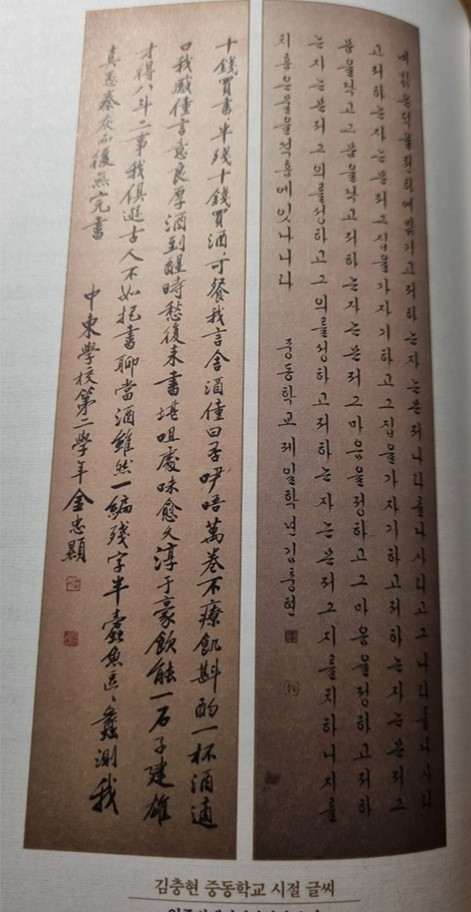 녜 밝은덕을텬하에밝키고져하는자는몬져나라를다사리고그나라를다사리
고져하는자는몬져그집을가자기하고그집을가자기하고져하는자는몬져그
몸을닥고그몸을닥고져하는자는몬져그마음을정하고그마음을정하고져하
는자는몬져그의를셩하고그의를셩하고져하는자는몬져그지를치하니지를
치홈은물을격홈에잇나니라 중동학교제일학년김충현
十錢買書〻半残十錢買酒〻可餐我言舍酒僮曰否咿唔萬卷不療飢斟酌一杯酒適
口我感僮言意良厚酒到醒時愁復來書堪咀處味愈久淳于豪飲能一石子建雄
才得八斗二事我俱遜古人不如把書聊當酒雖然一編殘字半蠹魚區〻蠡測我
真愚秦灰而後無完書 中東學校第二學年金忠顯
김충현 중동학교 시절 글씨